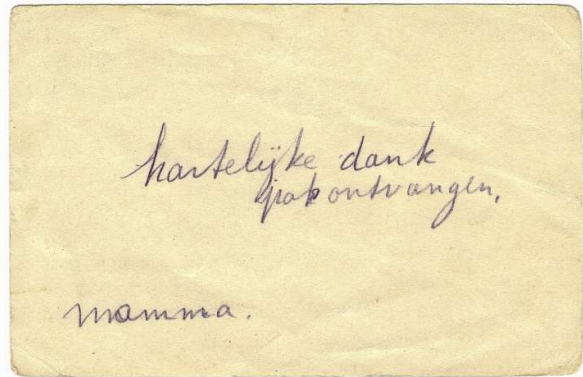 hartelijke dank
pak ontvangen,
mamma.